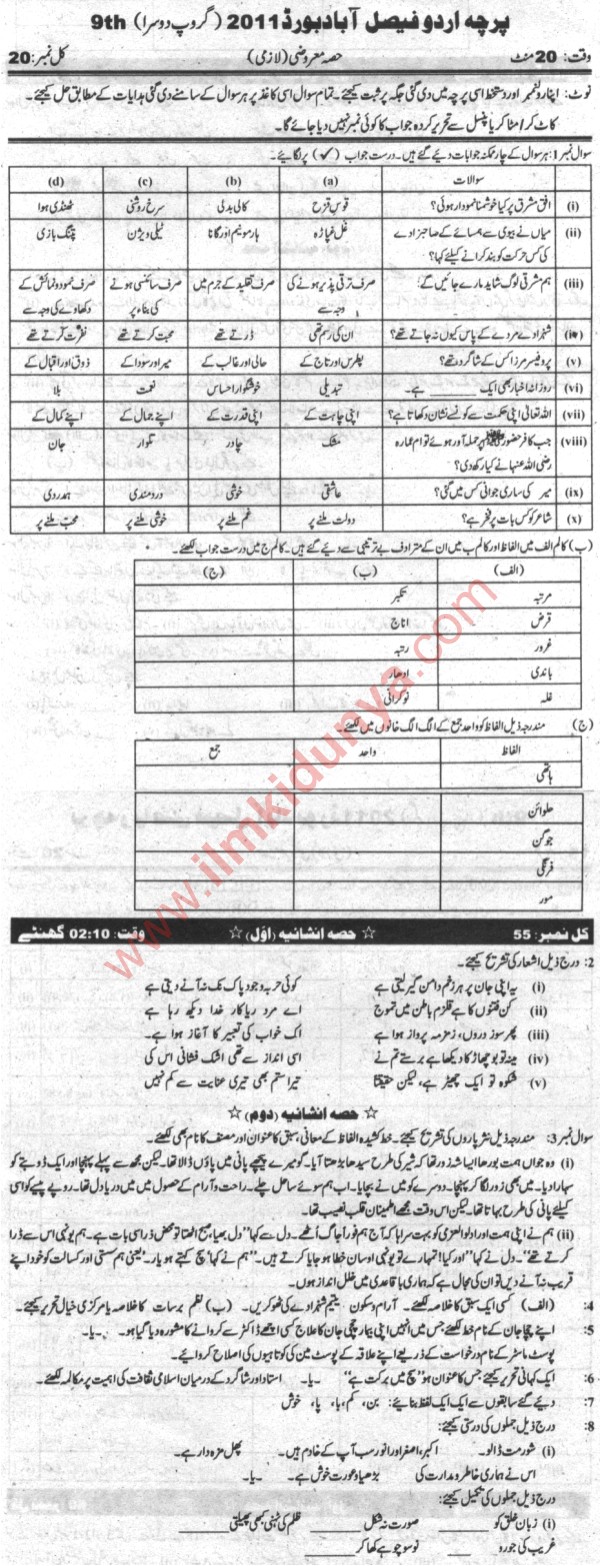 پرچہ اردو فیصل آباد بورڈ 2011 (گروپ دوسرا) 9th
وقت: 20 منٹ حصہ معروضی (لازمی) کل نمبر: 20
نوٹ: اپنا رولنمبر اور دستخط اسی پرچہ میں دی گئی جگہ پر ثبت کیجئے۔ تمام سوال اسی کاغذ پر ہر سوال کے سامنے دی گئی ہدایات کے مطابق حل کیجئے۔
کاٹ کر/مٹا کر یا پنسل سے تحریر کردہ جواب کا کوئی نمبر نہیں دیا جائے گا۔
سوال نمبر 1: ہر سوال کے چار ممکنہ جوابات دیئے گئے ہیں۔ درست جواب (✓) پر لگائیے۔
سوالات (a) (b) (c) (d)
(i) افق مشرق پر کیا خوشنما نمودار ہوئی؟ قوس قزح کالی بدلی سرخ روشنی ٹھنڈی ہوا
(ii) میاں نے بیوی سے ہمسائے کے صاحبزادے کی کس حرکت کو بند کرانے کیلئے کہا؟ غل غپاڑہ ہارمونیم اور گانا ٹیلی ویژن پتنگ بازی
(iii) ہم مشرقی لوگ شاید مارے جائیں گے: صرف ترقی پذیر ہونے کی وجہ سے صرف تقلید کے جرم میں صرف سائنسی ہونے کی بناء پر صرف نمود و نمائش کے دکھاوے کی وجہ سے
(iv) شہزادے مردے کے پاس کیوں نہ جاتے تھے؟ ان کی رسم تھی ڈرتے تھے محبت کرتے تھے نفرت کرتے تھے
(v) پروفیسر مرزا کس کے شاگرد تھے؟ پطرس اور تاج کے حالی اور غالب کے میر اور سودا کے ذوق اور اقبال کے
(vi) روزانہ اخبار بھی ایک ______ ہے۔ تبدیلی خوشگوار احساس نعمت بلا
(vii) اللہ تعالیٰ اپنی حکمت سے کونسے نشان دکھاتا ہے؟ اپنی چاہت کے اپنی قدرت کے اپنے جمال کے اپنے کمال کے
(viii) جب کافر حضورﷺ پر حملہ آور ہوئے تو ام عمارہ رضی اللہ عنہا نے کیا رکھ دی؟ مشک چادر تلوار جان
(ix) میر کی ساری جوانی کس میں گئی؟ عاشقی خوشی دردمندی ہمدردی
(x) شاعر کو کس بات پر فخر ہے؟ دولت ملنے پر غم ملنے پر خوشی ملنے پر محبت ملنے پر
(ب) کالم الف میں الفاظ اور کالم ب میں ان کے مترادف بے ترتیبی سے دیئے گئے ہیں۔ کالم ج میں درست جواب لکھئے۔
(الف) (ب) (ج)
مرتبہ تکبر
قرض اناج
غرور رتبہ
باندی ادھار
غلہ نوکرانی
(ج) مندرجہ ذیل الفاظ کو واحد جمع کے الگ الگ خانوں میں لکھئے۔
الفاظ واحد جمع
ہاتھی
حلوائن
جوگن
فرنگی
مور
کل نمبر: 55 ☆ حصہ انشائیہ (اوّل) ☆ وقت: 02:10 گھنٹے
2: درج ذیل اشعار کی تشریح کیجئے۔
(i) یہ اپنی جان پر ہر زخم دامن گیر لیتی ہے کوئی حربہ وجود پاک تک نہ آنے دیتی ہے
(ii) کن فتنوں کا ہے قلزم باطن میں تموج اے مرد ریاکار خدا دیکھ رہا ہے
(iii) پھر سوز دروں، زمزمہ پرداز ہوا ہے اک خواب کی تعبیر کا آغاز ہوا ہے۔
(iv) مینہ تو بوچھاڑ کا دیکھا ہے برستے تم نے اسی انداز سے تھی اشک فشانی اس کی
(v) شکوہ تو ایک چھیڑ ہے، لیکن حقیقتاً تیرا ستم بھی تیری عنایت سے کم نہیں
☆ حصہ انشائیہ (دوم) ☆
سوال نمبر 3: مندرجہ ذیل نثر پاروں کی تشریح کیجئے۔ خط کشیدہ الفاظ کے معانی سبق کا عنوان اور مصنف کا نام بھی لکھئے۔
(i) وہ جواں ہمت بوڑھا ایسا شہ زور تھا کہ شیر کی طرح سیدھا بڑھتا آیا۔ گو میرے پیچھے پانی میں پاؤں ڈالا تھا۔ لیکن مجھ سے پہلے پہنچا اور ایک ڈوبتے کو
سہارا دیا۔ میں بھی زور لگا کر پہنچا۔ دوسرے کو میں نے بچایا۔ اب ہم سوئے ساحل چلے۔ راحت و آرام کے حصول میں میں دریا دل تھا۔ روپے پیسے کو اسی
کیلئے پانی کی طرح بہاتا تھا۔ لیکن اس وقت مجھے اطمینان قلب نصیب تھا۔
(ii) ہم نے اپنی ہمت اور اولوالعزمی کو بہت سراہا کہ آج ہم فوراً جاگ اٹھے۔ دل سے کہا "دل بھیا، صبح اٹھنا تو محض ذرا سی بات ہے۔ ہم یونہی اس سے ڈرا
کرتے تھے" دل نے کہا "اور کیا! تمہارے تو یونہی اوسان خطا ہو جایا کرتے ہیں۔" ہم نے کہا "سچ کہتے ہو یار۔ یعنی ہم سستی اور کسالت کو خود اپنے
قریب نہ آنے دیں تو ان کی مجال ہے کہ ہماری باقاعدگی میں خلل انداز ہوں۔
4: (الف) کسی ایک سبق کا خلاصہ لکھئے۔ آرام و سکون یتیم شہزادے کی ٹھوکریں۔ (ب) نظم برسات کا خلاصہ یا مرکزی خیال تحریر کیجئے۔
5: اپنے چچا جان کے نام خط لکھئے جس میں انہیں اپنی بیمار چچی جان کا علاج کسی اچھے ڈاکٹر سے کروانے کا مشورہ دیا گیا ہو۔ ۔یا۔
پوسٹ ماسٹر کے نام درخواست کے ذریعے اپنے علاقہ کے پوسٹ مین کی کوتاہیوں کی اصلاح کروائیے۔
6: ایک کہانی تحریر کیجئے جس کا عنوان ہو "سچ میں برکت ہے" ۔یا۔ استاد اور شاگرد کے درمیان اسلامی ثقافت کی اہمیت پر مکالمہ لکھئے۔
7: دیئے گئے سابقوں سے ایک ایک لفظ بنائیے: بن، کم، با، پا، خوش
8: درج ذیل جملوں کی درستی کیجئے:
(i) شور مت ڈالو۔ اکبر، اصغر اور انور سب آپ کے خادم ہیں۔ پھل مزہ دار ہے۔
اس نے ہماری خاطر و مدارت کی بڑھیا وہ عورت خوش ہے۔ ۔یا۔
درج ذیل جملوں کی تکمیل کیجئے:
(i) زبان خلق کو ______ صورت نہ شکل ______ ظلم کی ٹہنی کبھی پھیلتی ______
غریب کی جورو ______ نو سو چوہے کھا کر ______
www.ilmkidunya.com